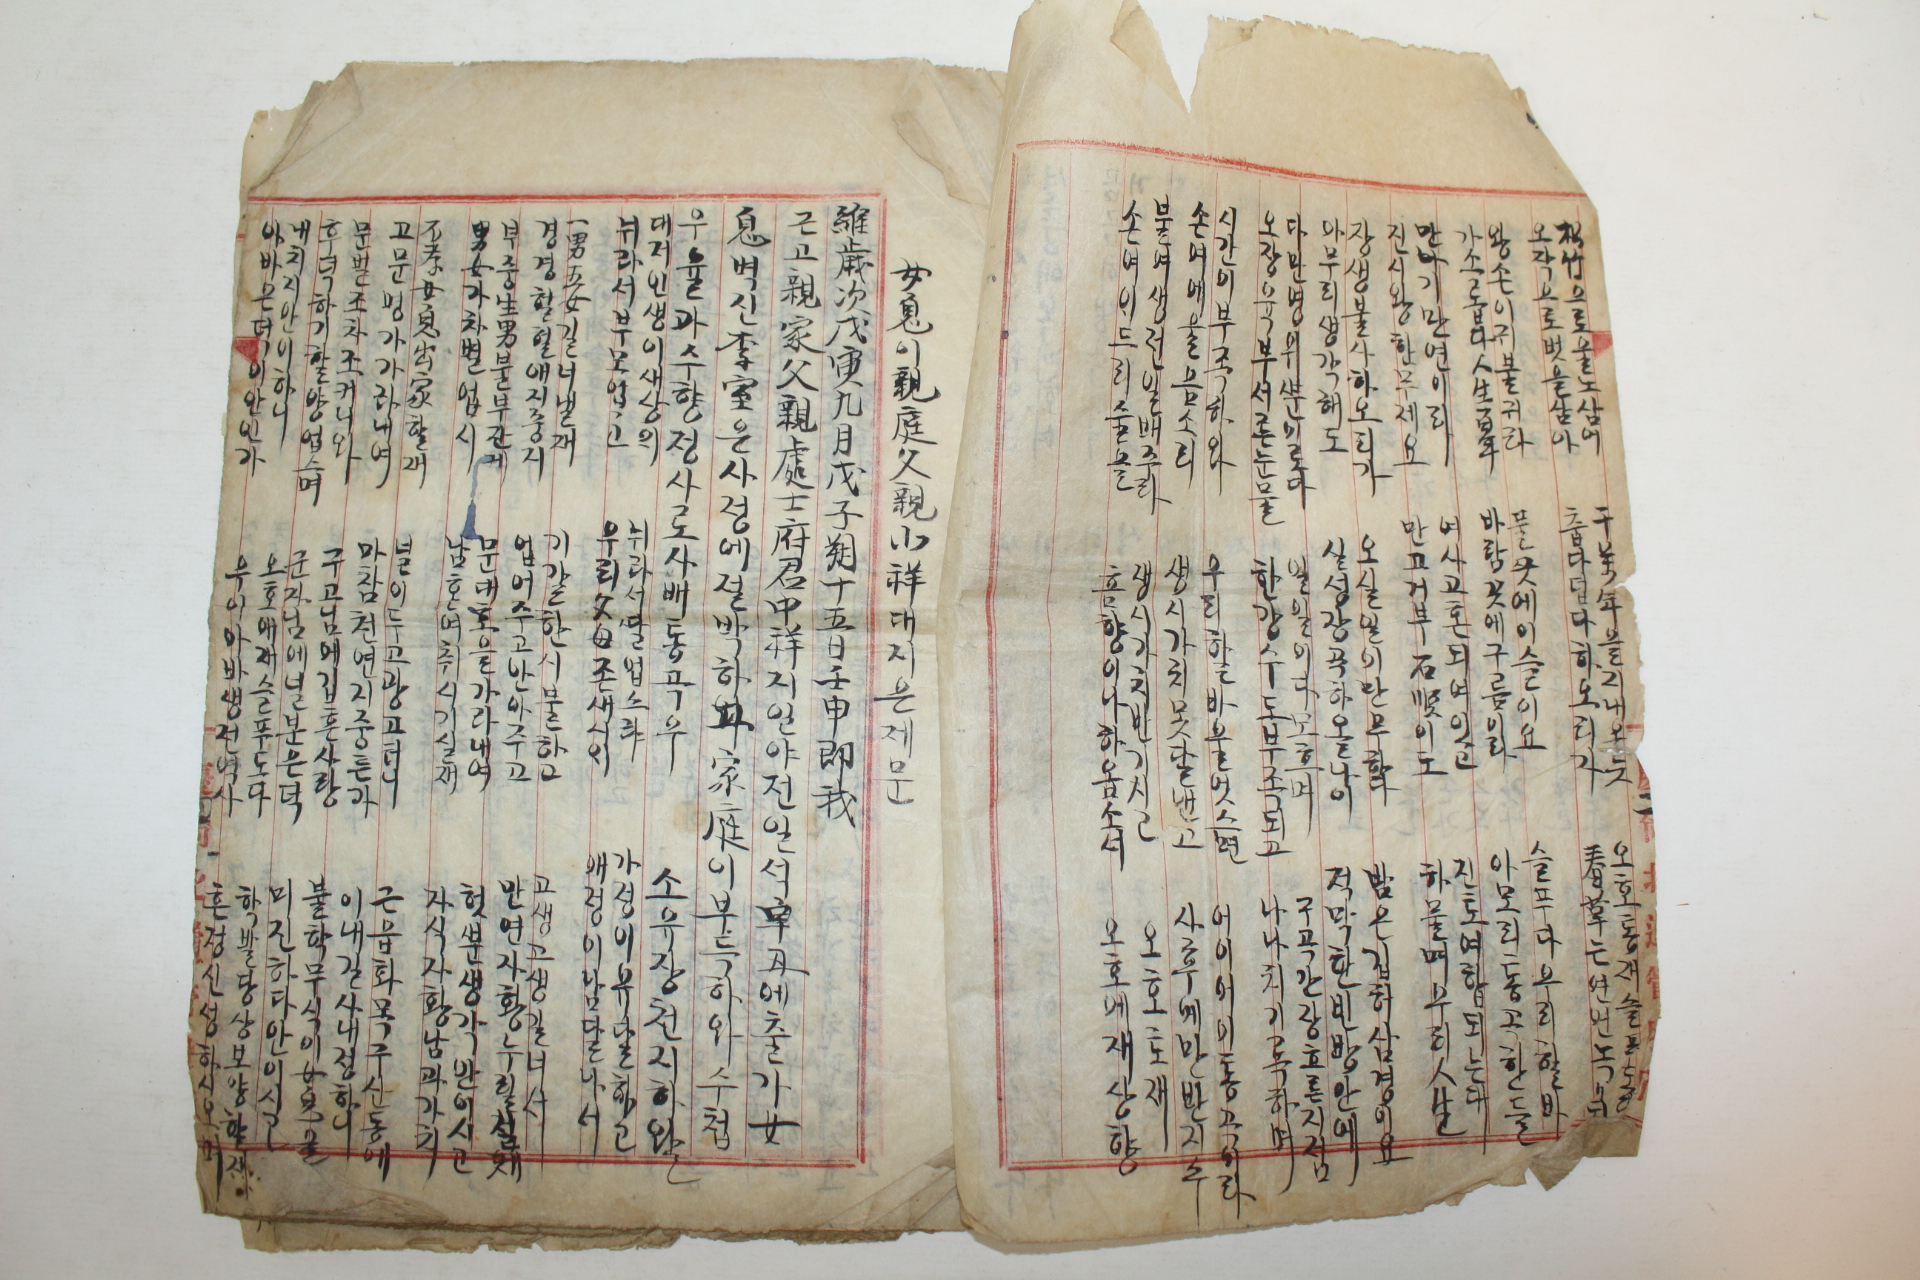 松竹으로울노삼어 千萬年을지내보듯 오호통재슬프도다
오작으로벗을삼아 춥다덥다하오리가 春草는연연녹이
왕손이귀불귀라 풀끗에이슬이요 슬푸다우리할바
가소롭다人生百年 바람끗에구름일라 아모리통곡한들
만나기만연이라 여사고혼되여잇고 진토여합되는대
진시왕한무제요 만고거부石順이도 하물며우리人生
장생불사하오리가 오실일이만무함 밤은깁허삼경이요
아무리생각해도 실성장곡하올나이 적막한빈방안에
다만명위뿐이로다 일일이다모흐며 구곡간장흐른지점
오장육부서른눈물 한강수도부족되고 나나치기록하며
시간이부족하와 우리할바울엇스면 어이어이통곡이라
손여에울음소리 생시가치못달낸고 사후에만반지수
불여생전일배주라 갱시가치반기시고 오호호재
손여이드리술을 흠향이나하옵소서 오호애재상향
女息이親庭父親小祥대지은제문
維歲次戊寅九月戊子朔十五日壬申卽我
근고親家父親處士府君中祥지일야전일석 에출가女
息벽신李室은사정에절박하와家庭이부득하와수첩
우율과수향정사로사배통곡우 소유장천지하왈
대저인생이세상의 뉘라서딸업스랴 가정이유달하고
뉘라서부모업고 우리父母존새시 애정이남달나서
一男五女길너낼재 기갈한시물하고 고생고생길너서
경경할혈애지중지 업어주고안아주고 만연자황누릴실재
부중生男불부잔거 문대혼을가라내여 헛뿐생각반이시고
男女가차별업시 남혼여취시기실재 자식자황남과가치
不孝女息出家할재 널이두고광고터니 근읍화목주신동애
고문명가가라내여 마참천연지중튼가 이내길사내정하니
문벌조차조커니와 구고님에깁흔사랑 불학무식이女息을
후덕하기할양업스며 군자님에널분은덕 미진하다안이시고
내치지안이하니 오호애재슬푸도다 학발당상보양할재
아바은덕이안인가 우이아바생전역사 혼정신성하시오며